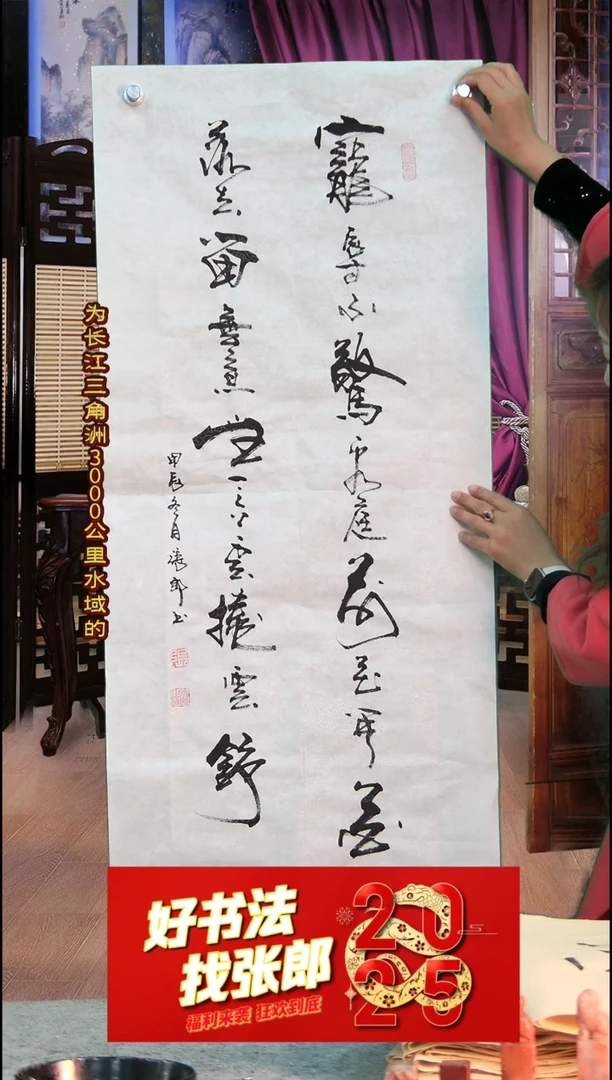 寵辱不驚看庭前花開花
落去留無意望天空雲捲雲舒
甲辰冬月張郎书
为长江三角洲3000公里水域的
好书法
找张郎
福利来袭 狂欢到底
2025